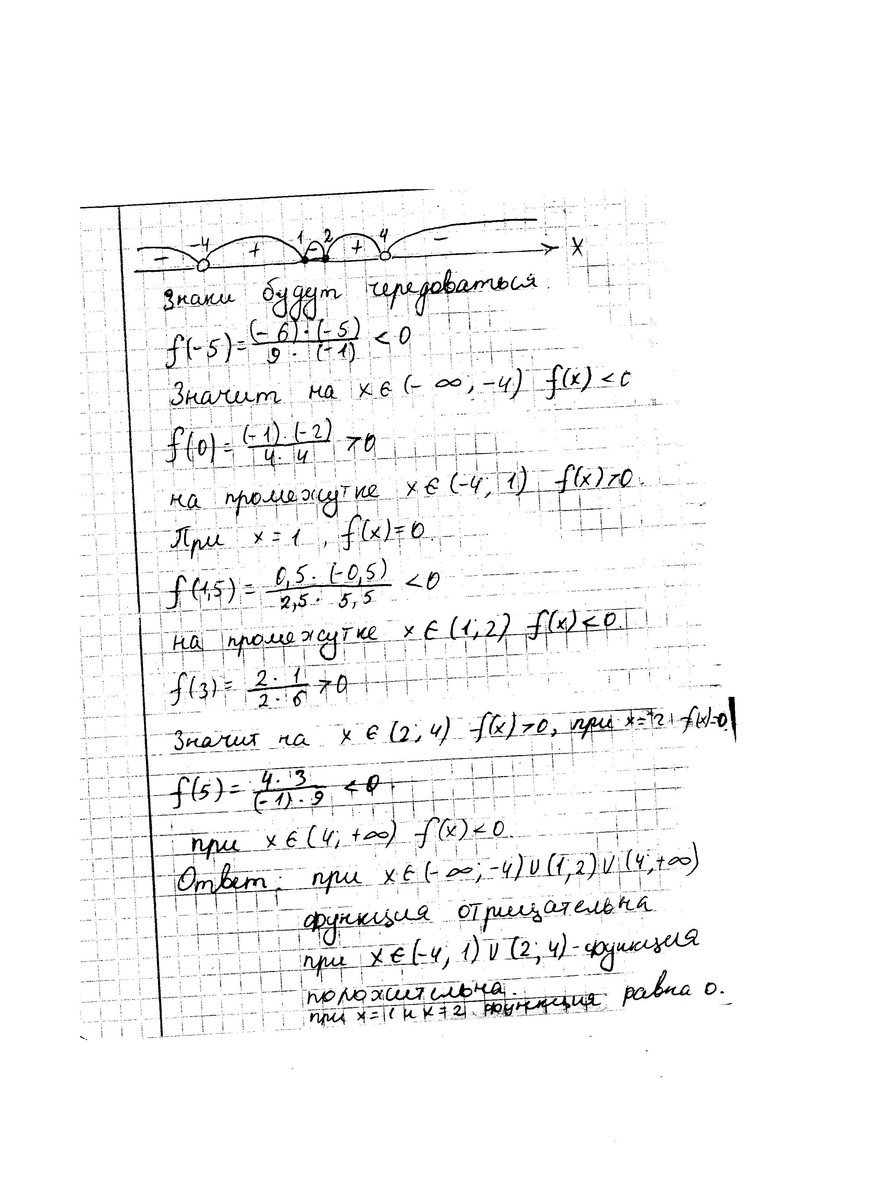 -4 1 2 4
- + - + - x
Знаки будут чередоваться.
f(-5)=\frac{(-6)·(-5)}{9·(-1)}<0
Значит на x∈(-∞;-4) f(x)<0
f(0)=\frac{(-1)·(-2)}{4·4}>0
на промежутке x∈(-4;1) f(x)>0.
При x=1, f(x)=0.
f(1,5)=\frac{0,5·(-0,5)}{2,5·5,5}<0
на промежутке x∈(1;2) f(x)<0.
f(3)=\frac{2·1}{2·6}>0
Значит на x∈(2;4) f(x)>0, при x=2 f(x)=0.
f(5)=\frac{4·3}{(-1)·9}<0
при x∈(4;+∞) f(x)<0.
Ответ: при x∈(-∞;-4)∪(1;2)∪(4;+∞)
функция отрицательна
при x∈(-4;1)∪(2;4)-функция
положительна.
при x=1 и x=2 функция равна 0.